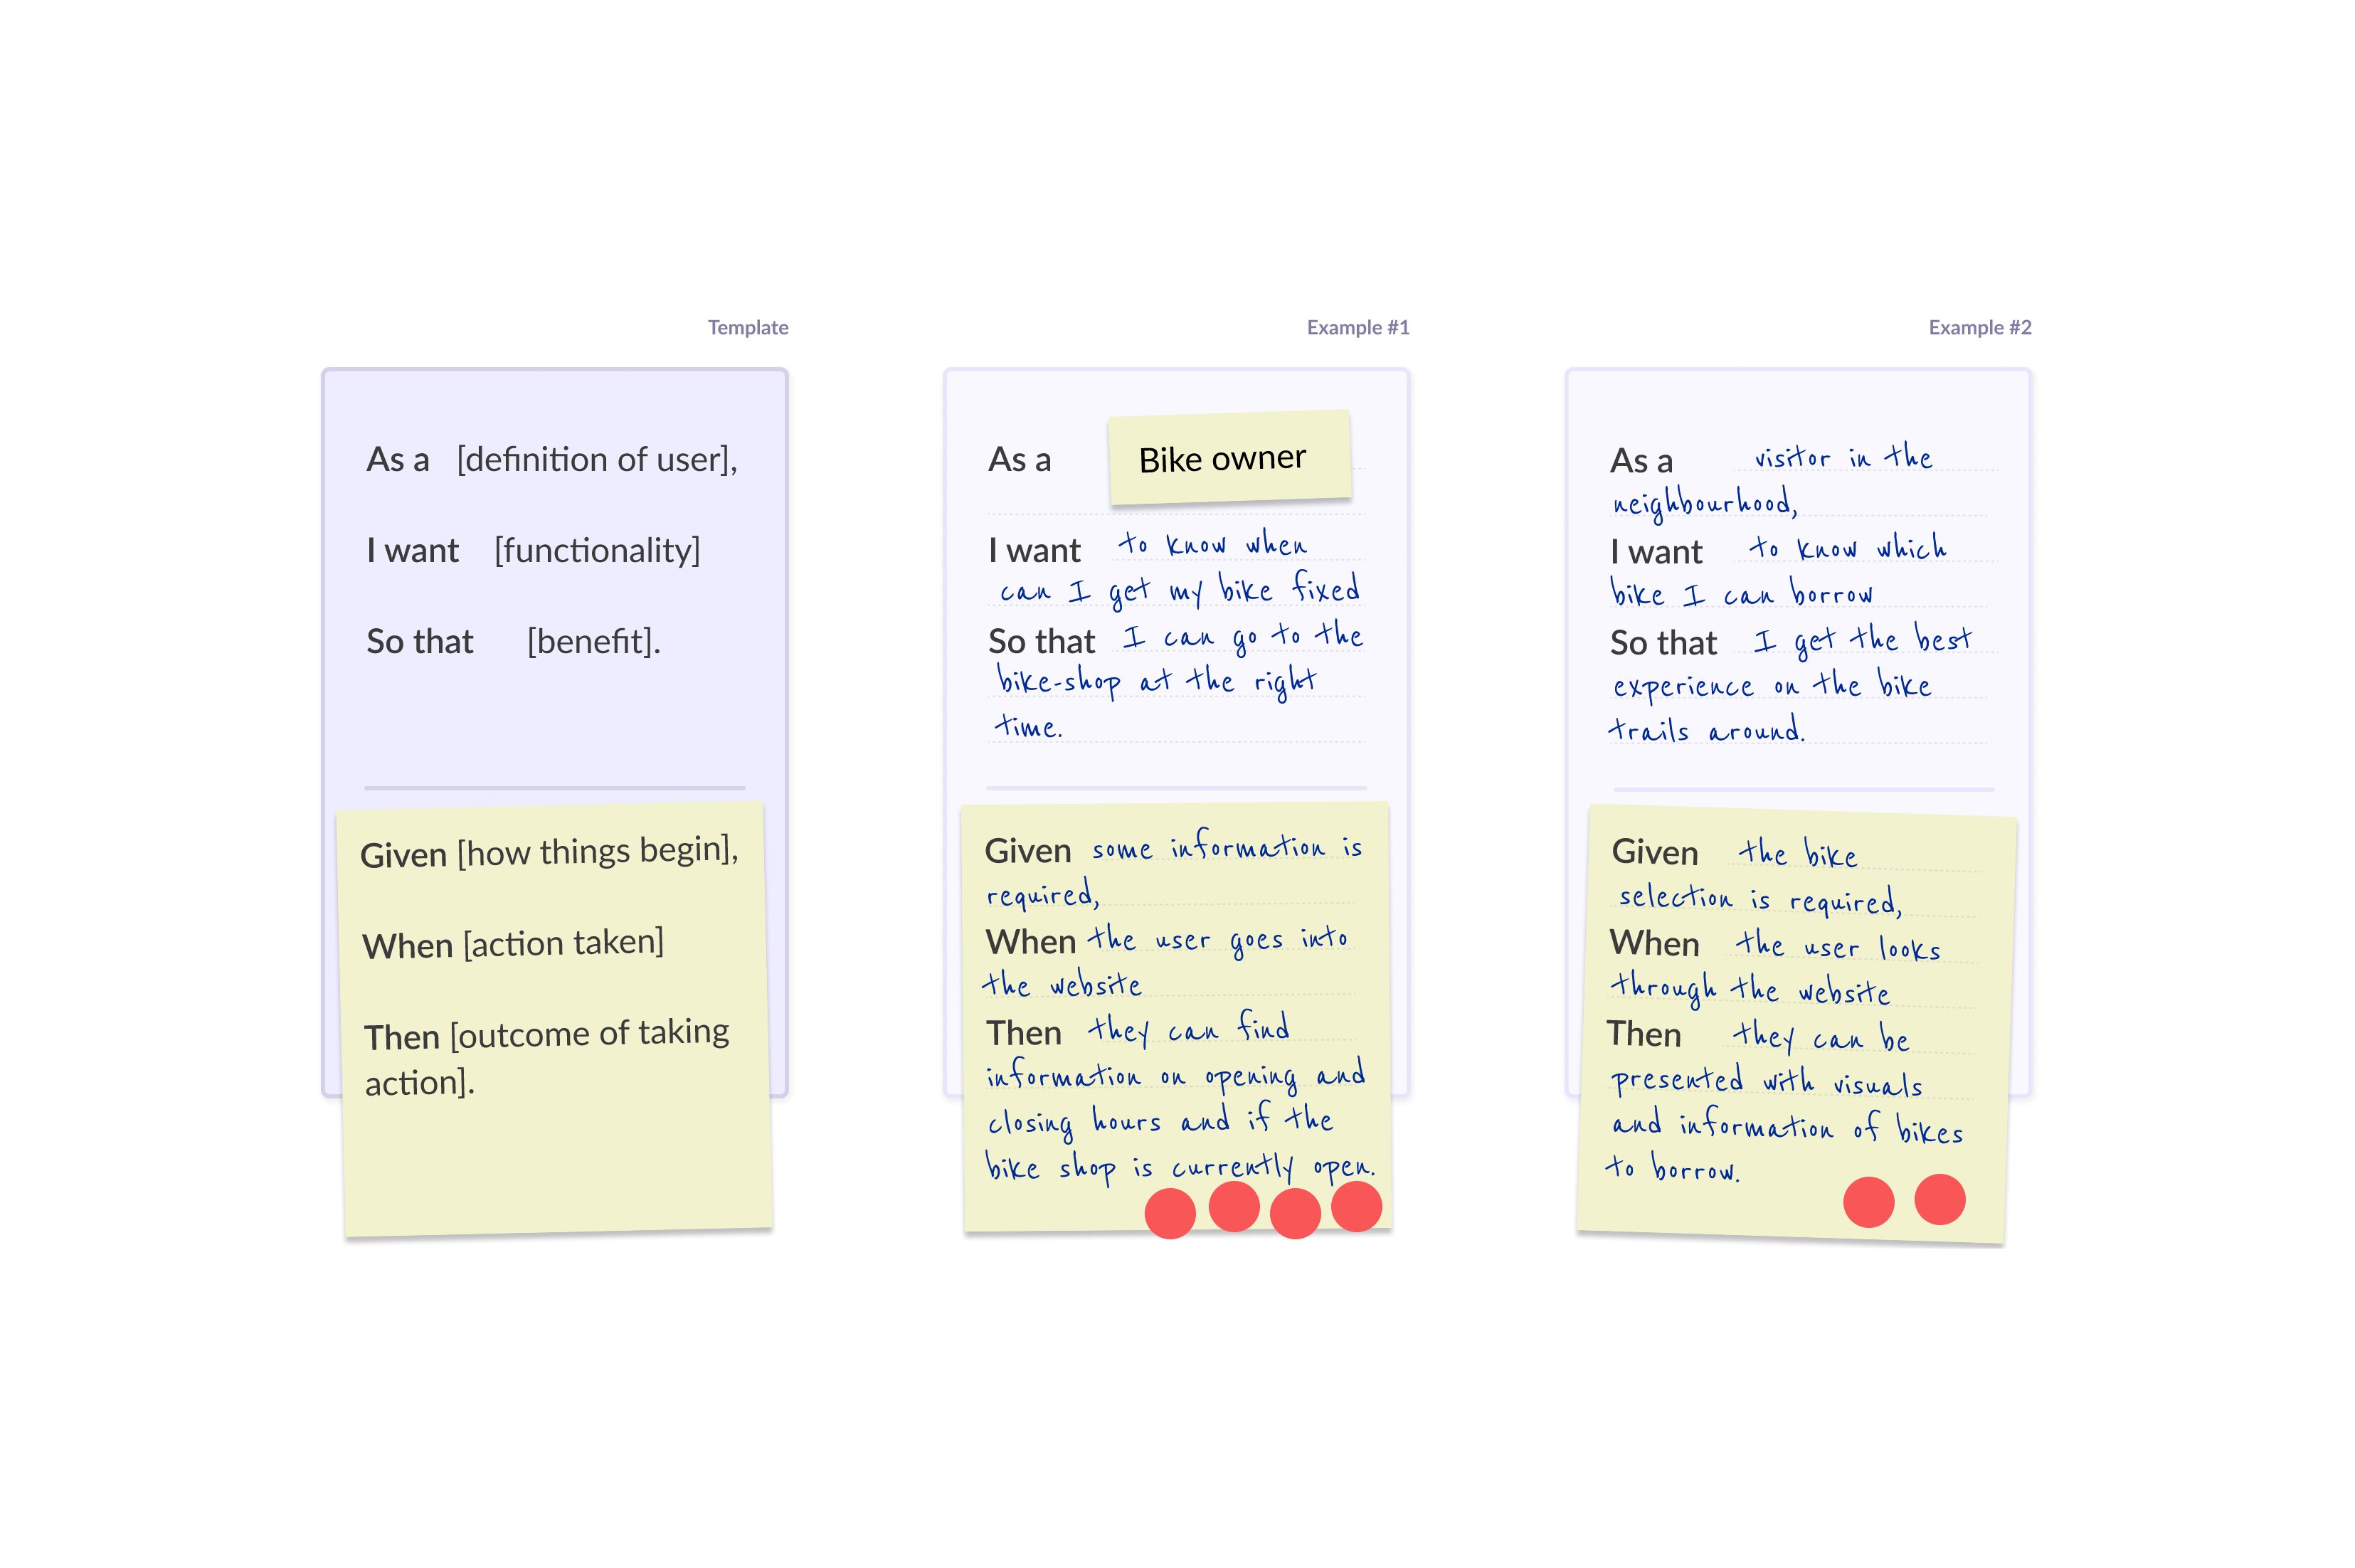 Template
As a [definition of user],
I want [functionality]
So that [benefit].
Given [how things begin],
When [action taken]
Then [outcome of taking
action].
Example #1
As a Bike owner
I want to know when
can I get my bike fixed
So that I can go to the
bike-shop at the right
time.
Given some information is
required,
When the user goes into
the website
Then they can find
information on opening and
closing hours and if the
bike shop is currently open.
Example #2
As a visitor in the
neighbourhood,
I want to know which
bike I can borrow
So that I get the best
experience on the bike
trails around.
Given the bike
selection is required,
When the user looks
through the website
Then they can be
presented with visuals
and information of bikes
to borrow.